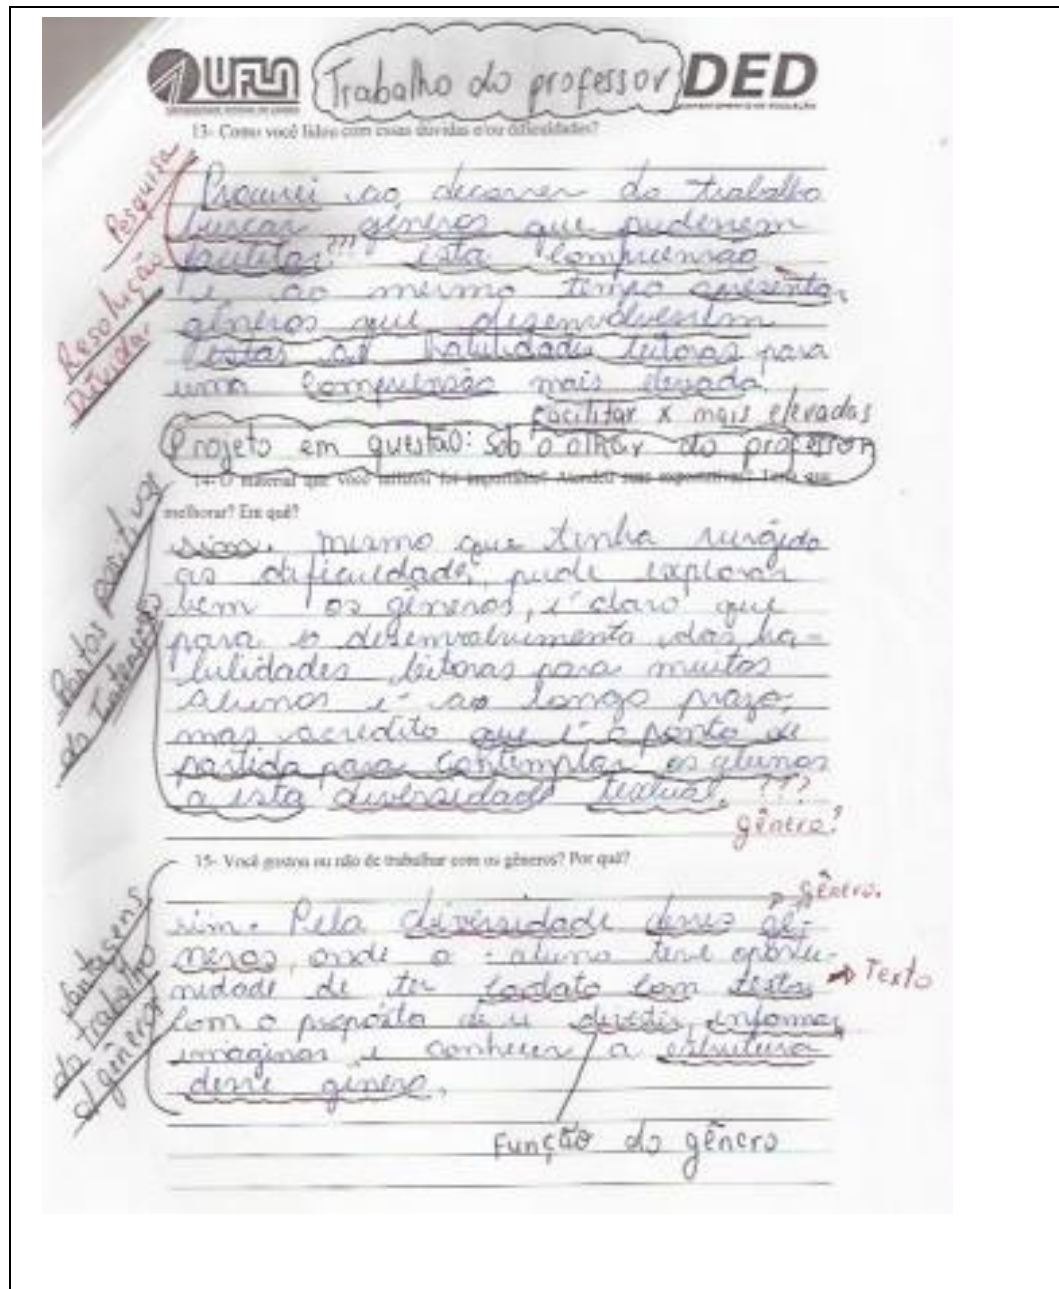 UFLA
Trabalho do professor
DED
13- Como você lidou com essas dúvidas e/ou dificuldades?
Pesquisa
Resolução
Procurei ao decorrer do trabalho
buscar gêneros que pudessem
facilitar??? esta compreensão
e ao mesmo tempo apresentar
gêneros que desenvolvessem
as habilidades leitoras para
uma compreensão mais elevada.
Facilitar x mais elevadas
Projeto em questão: sob o olhar do professor
14- O material que você utilizou foi importante? Atendeu suas expectativas? Teria que
melhorar? Em quê?
Pontos positivos
da
sim. mesmo que tenha surgido
as dificuldades, pude explorar
bem os gêneros, é claro que
para o desenvolvimento das ha-
bilidades leitoras para muitos
alunos é ao longo prazo,
mas acredito que é o ponto de
partida para contemplar os alunos
a esta diversidade textual. ???
gênero?
15- Você gostou ou não de trabalhar com os gêneros? Por quê?
Vantagens
do trabalho
c/ gêneros
Gênero.
sim. Pela diversidade desses gê-
neros, onde o aluno teve oportu-
nidade de ter contato com textos
Texto
com o propósito de se divertir, informar,
imaginar e conhecer a estrutura
desse gênero.
Função do gênero